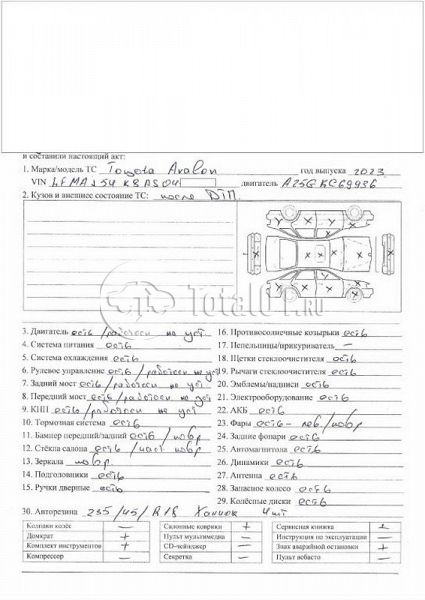 и составили настоящий акт:
1. Марка/модель ТС Toyota Avalon год выпуска 2023
VIN LFMA154K8AS04 двигатель A25G KC69936
2. Кузов и внешнее состояние ТС: после ДТП
Total01.RU
3. Двигатель есть / работосп не уст.
4. Система питания есть
5. Система охлаждения есть
6. Рулевое управление есть / работосп не уст
7. Задний мост есть / работосп не уст.
8. Передний мост есть / работосп не уст.
9. КПП есть / работосп не уст.
10. Тормозная система есть
11. Бампер передний/задний есть / повр
12. Стёкла салона есть / част повр
13. Зеркала повр
14. Подголовники есть
15. Ручки дверные есть
16. Противосолнечные козырьки есть
17. Пепельницы/прикуриватель –
18. Щетки стеклоочистителя есть
19. Рычаги стеклоочистителя есть
20. Эмблемы/надписи есть
21. Электрооборудование есть
22. АКБ есть
23. Фары есть - лев./повр
24. Задние фонари есть
25. Автомагнитола есть
26. Динамики есть
27. Антенна есть
28. Запасное колесо есть
29. Колёсные диски есть
30. Авторезина 235/45/R18 Ханкок 4шт
Колпаки колёс — Салонные коврики + Сервисная книжка +
Домкрат + Пульт мультимедиа — Инструкция по эксплуатации —
Комплект инструментов + CD-чейнджер — Знак аварийной остановки +
Компрессор — Секретка — Пульт вебасто —